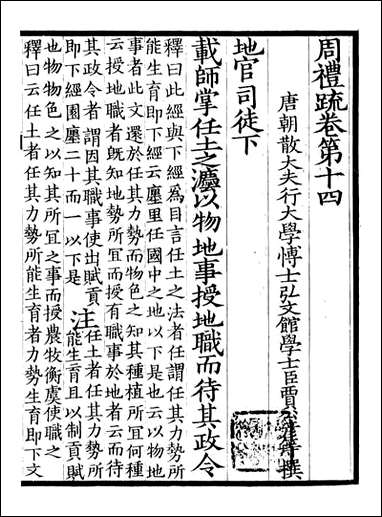 周禮疏卷第十四
唐朝散大夫行大學博士弘文館學士臣賈公彥等撰
地官司徒下
載師掌任土之灋以物地事授地職而待其政令
釋曰此經與下經爲目言任土之法者任謂任其力勢所
能生育即下經云廛里任國中之地以下是也云以物地
事者此文還於任其力勢而物色之知其種植所宜何種
云授地職者既知地勢所宜而授有職事於地者云而待
其政令者謂因其職事使出賦貢
即下經園廛二十而一以下是
注
任土者任其力勢所
能生育且以制貢賦
也物物色之以知其所宜之事而授農牧衡虞使職之
釋曰云任土者任其力勢所能生育者力勢生育即下文